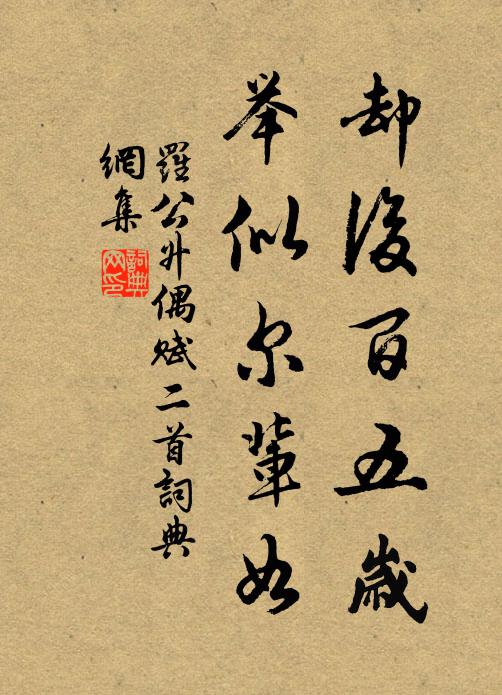 却後百五歲
举似尔輩如
羅公升偶賦二首詞典
網集
詞典网印